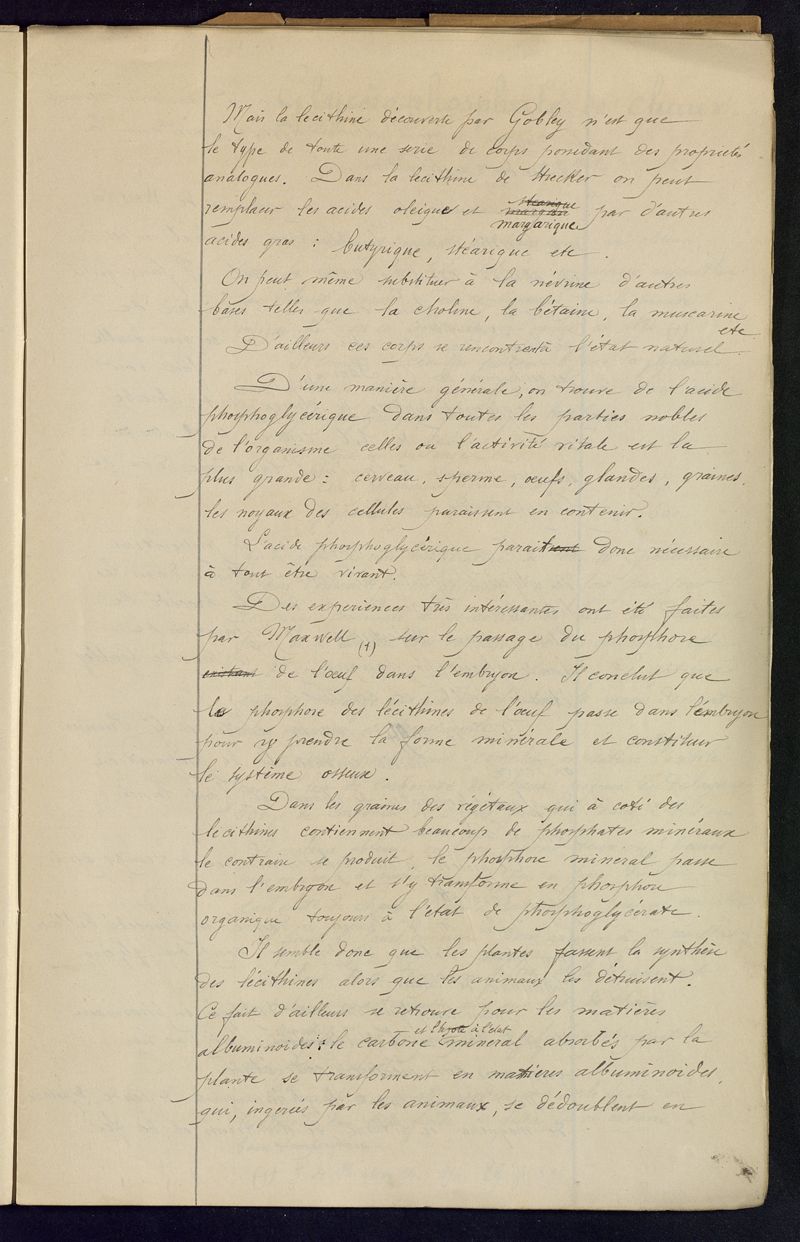 Mais la lecithine découverte par Gobley n'est que
le type de toute une serie de corps possedant des proprietés
analogues. Dans la lecithine de Strecker on peut
remplacer les acides oleique et stearique margarique par d'autres
acides gras : butyrique, stéarique etc.
On peut même substituer à la névrine d'autres
bases telles que la choline, la bétaine, la muscarine
etc
D'ailleurs ces corps se rencontrent à l'état naturel.
D'une manière générale, on trouve de l'acide
phosphoglycérique dans toutes les parties nobles
de l'organisme celles ou l'activité vitale est la
plus grande : cerveau, sperme, œufs, glandes, graines.
les noyaux des cellules paraissent en contenir.
L'acide phosphoglycérique parait donc nécessaire
à tout être vivant.
Des experiences très intéressantes ont été faites
par Maxwell (1) sur le passage du phosphore
existant de l'œuf dans l'embryon. Il conclut que
le phosphore des lécithines de l'œuf passe dans l'embryon
pour y prendre la forme minérale et constituer
le système osseux.
Dans les graines des végétaux qui à coté des
lecithines contiennent beaucoup de phosphates minéraux
le contraire se produit, le phosphore mineral passe
dans l'embryon et s'y transforme en phosphore
organique toujours à l'état de phosphoglycérate.
Il semble donc que les plantes fassent la synthèse
des lécithines alors que les animaux les détruisent.
Ce fait d'ailleurs se retrouve pour les matières
et l'azote à l'état
albuminoides : le carbone mineral absorbés par la
plante se transforment en matieres albuminoides,
qui, ingerées par les animaux, se dédoublent en